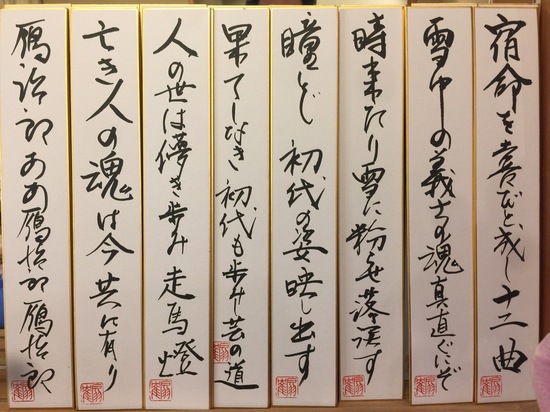 宿命を喜びと成し十二曲
雪中の義士の魂真直ぐにぞ
時来たり雪に粉せ落涙す
瞳とじ 初代の姿映し出す
果てしなき 初代も歩みし芸の道
人の世は儚き歩み 走馬燈
亡き人の魂は今 共に有り
鴈治郎ああ鴈治郎鴈治郎